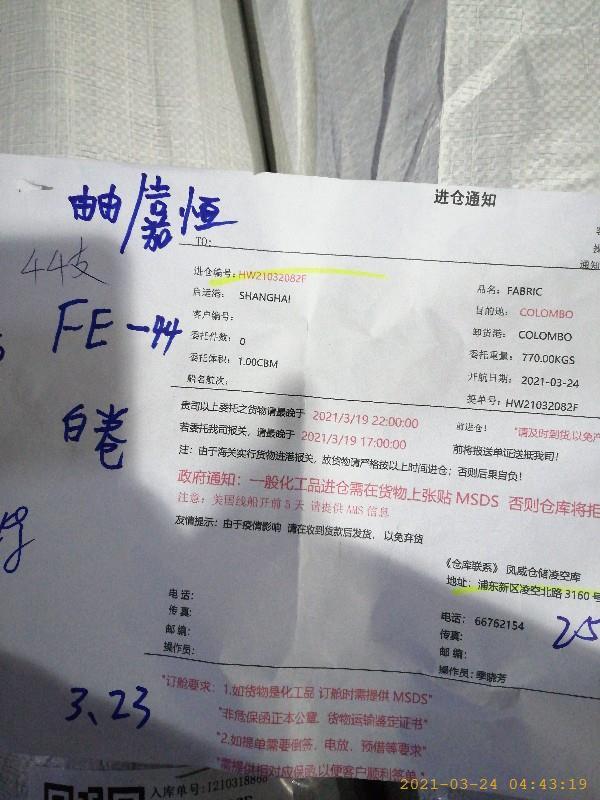 进仓通知
由由/嘉恒
TO:
44支
进仓编号: HW21032082F
品名: FABRIC
启运港: SHANGHAI
目的地: COLOMBO
客户编号:
卸货港: COLOMBO
FE-44
委托件数: 0
委托重量: 770.00KGS
委托体积: 1.00CBM
开航日期: 2021-03-24
船名航次:
提单号: HW21032082F
贵司以上委托之货物请最晚于 2021/3/19 22:00:00 前进仓! "请及时到货,以免产
白卷
若委托我司报关, 请最晚于 2021/3/19 17:00:00 前将报送单证送抵我司!
注: 由于海关实行货物进港报关, 故货物请严格按以上时间进仓; 否则后果自负!
政府通知: 一般化工品进仓需在货物上张贴 MSDS 否则仓库将拒
注意: 美国线船开前 5 天 请提供 AMS 信息
友情提示: 由于疫情影响 请在收到货款后发货, 以免弃货
《仓库联系》 风威仓储凌空库
地址: 浦东新区凌空北路 3160 号
电话:
电话: 66762154
25
传真:
传真:
邮编:
邮编:
操作员:
操作员: 季晓芳
"订舱要求: 1.如货物是化工品 订舱时需提供 MSDS"
3、23
"非危保函正本公章, 货物运输鉴定证书"
"2.如提单需要倒签, 电放, 预借等要求"
"需提供相对应保函,以便客户顺利签单"
入库单号:1210318868
2021-03-24 04:43:19